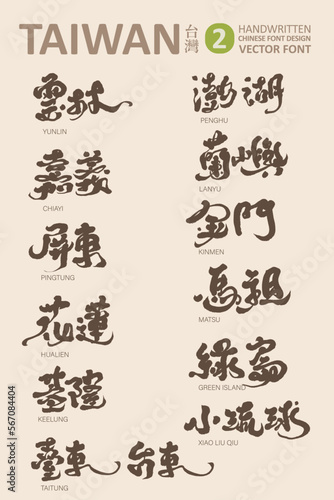 TAIWAN 台灣 2 HANDWRITTEN
CHINESE FONT DESIGN
VECTOR FONT
雲林
YUNLIN
嘉義
CHIAYI
屏東
PINGTUNG
花蓮
HUALIEN
基隆
KEELUNG
臺東 台東
TAITUNG
澎湖
PENGHU
蘭嶼
LANYU
金門
KINMEN
馬祖
MATSU
綠島
GREEN ISLAND
小琉球
XIAO LIU QIU
Adobe Stock | #567084404